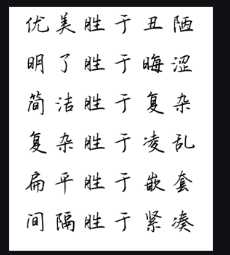 优美胜于丑陋
明了胜于晦涩
简洁胜于复杂
复杂胜于凌乱
扁平胜于嵌套
间隔胜于紧凑